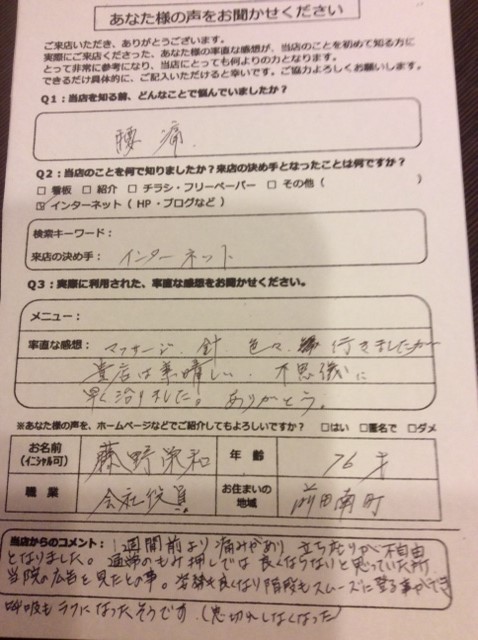 あなた様の声をお聞かせください
ご来店いただき、ありがとうございます。
実際にご来店くださった、あなた様の率直な感想が、当店のことを初めて知る方に
とって非常に参考になり、当店にとっても何よりの力となります。
できるだけ具体的に、ご記入いただけると幸いです。ご協力よろしくお願いします。
Q1：当店を知る前、どんなことで悩んでいましたか？
腰痛
Q2：当店のことを何で知りましたか？来店の決め手となったことは何ですか？
□ 看板 □ 紹介 □ チラシ・フリーペーパー □ その他（ ）
☑ インターネット（ HP・ブログなど ）
検索キーワード：
来店の決め手： インターネット
Q3：実際に利用された、率直な感想をお聞かせください。
メニュー：
率直な感想： マッサージ、針、色々 行きましたが
当店は素晴しい、不思儀に
早く治りました! ありがとう。
※あなた様の声を、ホームページなどでご紹介してもよろしいですか？ □はい □匿名で □ダメ
お名前（イニシャル可） 藤野栄和 年齢 76才
職業 会社役員 お住まいの地域 前田南町
当店からのコメント： 1週間前より痛みがあり 立ちたりが不自由
となりました。通常のもみ押しでは良くならないと思っていた所
当院の広告を見たとの事。姿勢も良くなり階段もスムーズに登る事ができ
呼吸もラクになったそうです（息切れしなくなった）